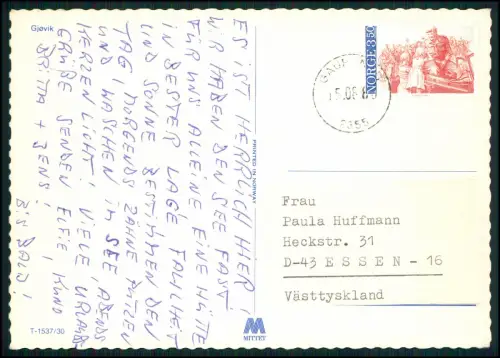 Gjøvik
ES IST HERRLICH HIER!
WIR HABEN DEN SEE FAST
FÜR UNS ALLEINE EINE HÜTTE
IN BESTER LAGE FAULHEIT
UND SONNE BESTIMMEN DEN
TAG! MORGENDS ZÄHNE PUTZEN
UND WASCHEN IM SEE, ABENDS
KERZENLICHT! VIELE URLAUBS
GRÜßE SENDEN ELFIE KUNO
BRITTA + JENS!
BIS BALD!
T-1537/30
PRINTED IN NORWAY
M
MITTET
NORGE 350
2355
Frau
Paula Huffmann
Heckstr. 31
D-43 ESSEN - 16
Västtyskland